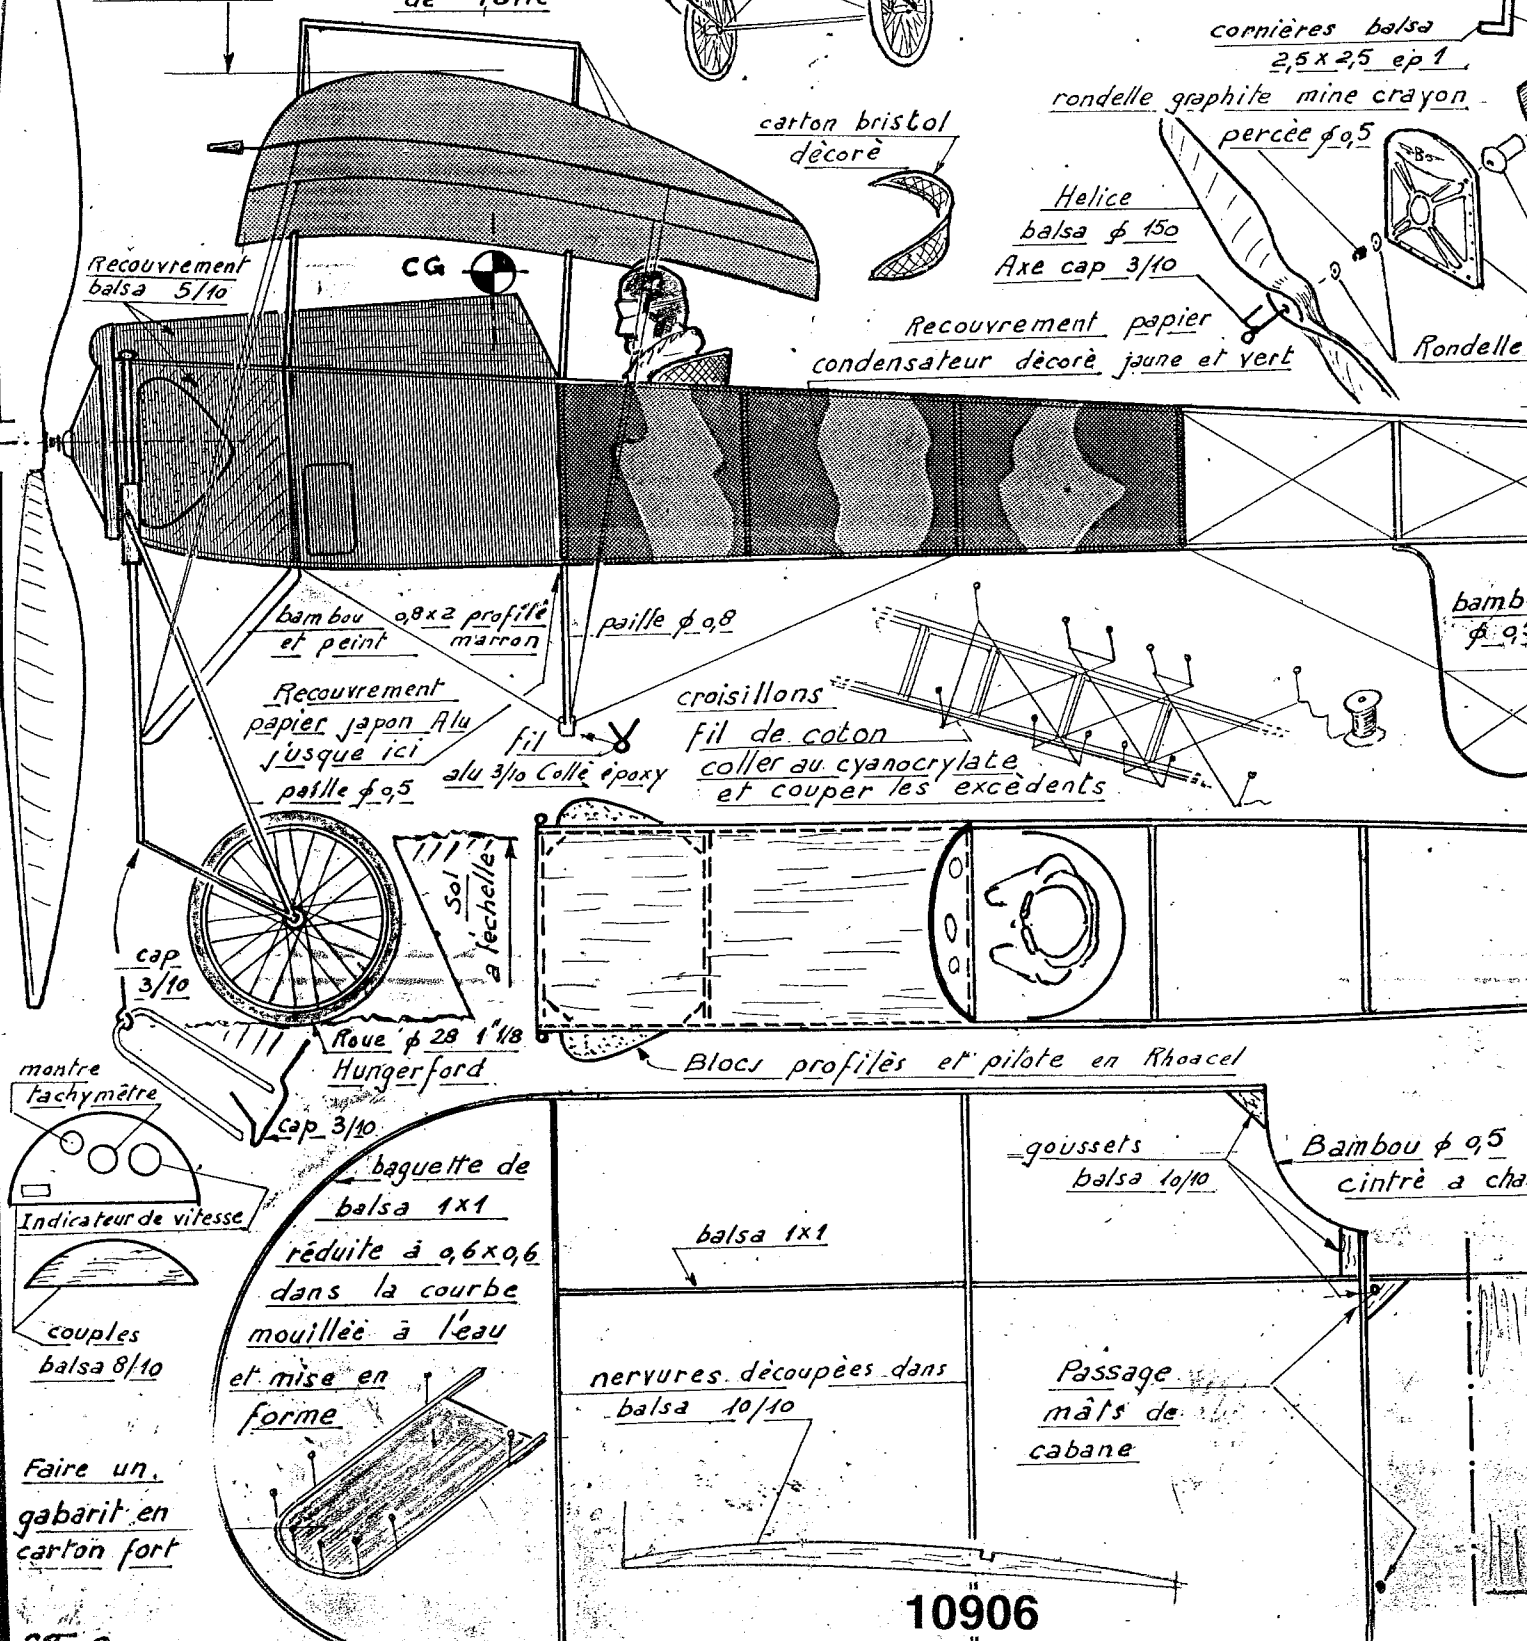 cornières balsa
2,5 x 2,5 ep 1
rondelle graphite mine crayon
percée φ 0,5
carton bristol
décoré
B
Helice
balsa φ 150
Axe cap 3/10
CG
Recouvrement
balsa 5/10
Recouvrement papier
condensateur décoré jaune et vert
Rondelle
bambou 0,8x2 profilé
et peint marron
paille φ 0,8
Recouvrement
papier japon Alu
jusque ici
fil
alu 3/10 Collé époxy
paille φ 0,5
croisillons
fil de coton
coller au cyanocrylate
et couper les excédents
Sol
a l'échelle
cap
3/10
Roue φ 28 1"1/8
Hungerford
Blocs profilés et pilote en Rhoacel
montre
tachymêtre
cap 3/10
Indicateur de vitesse
couples
balsa 8/10
baguette de
balsa 1x1
réduite à 0,6x0,6
dans la courbe
mouillée à l'eau
et mise en
forme
Faire un
gabarit en
carton fort
balsa 1x1
nervures découpées dans
balsa 10/10
goussets
balsa 10/10
Bambou φ 0,5
cintré a
Passage
mâts de
cabane
10906